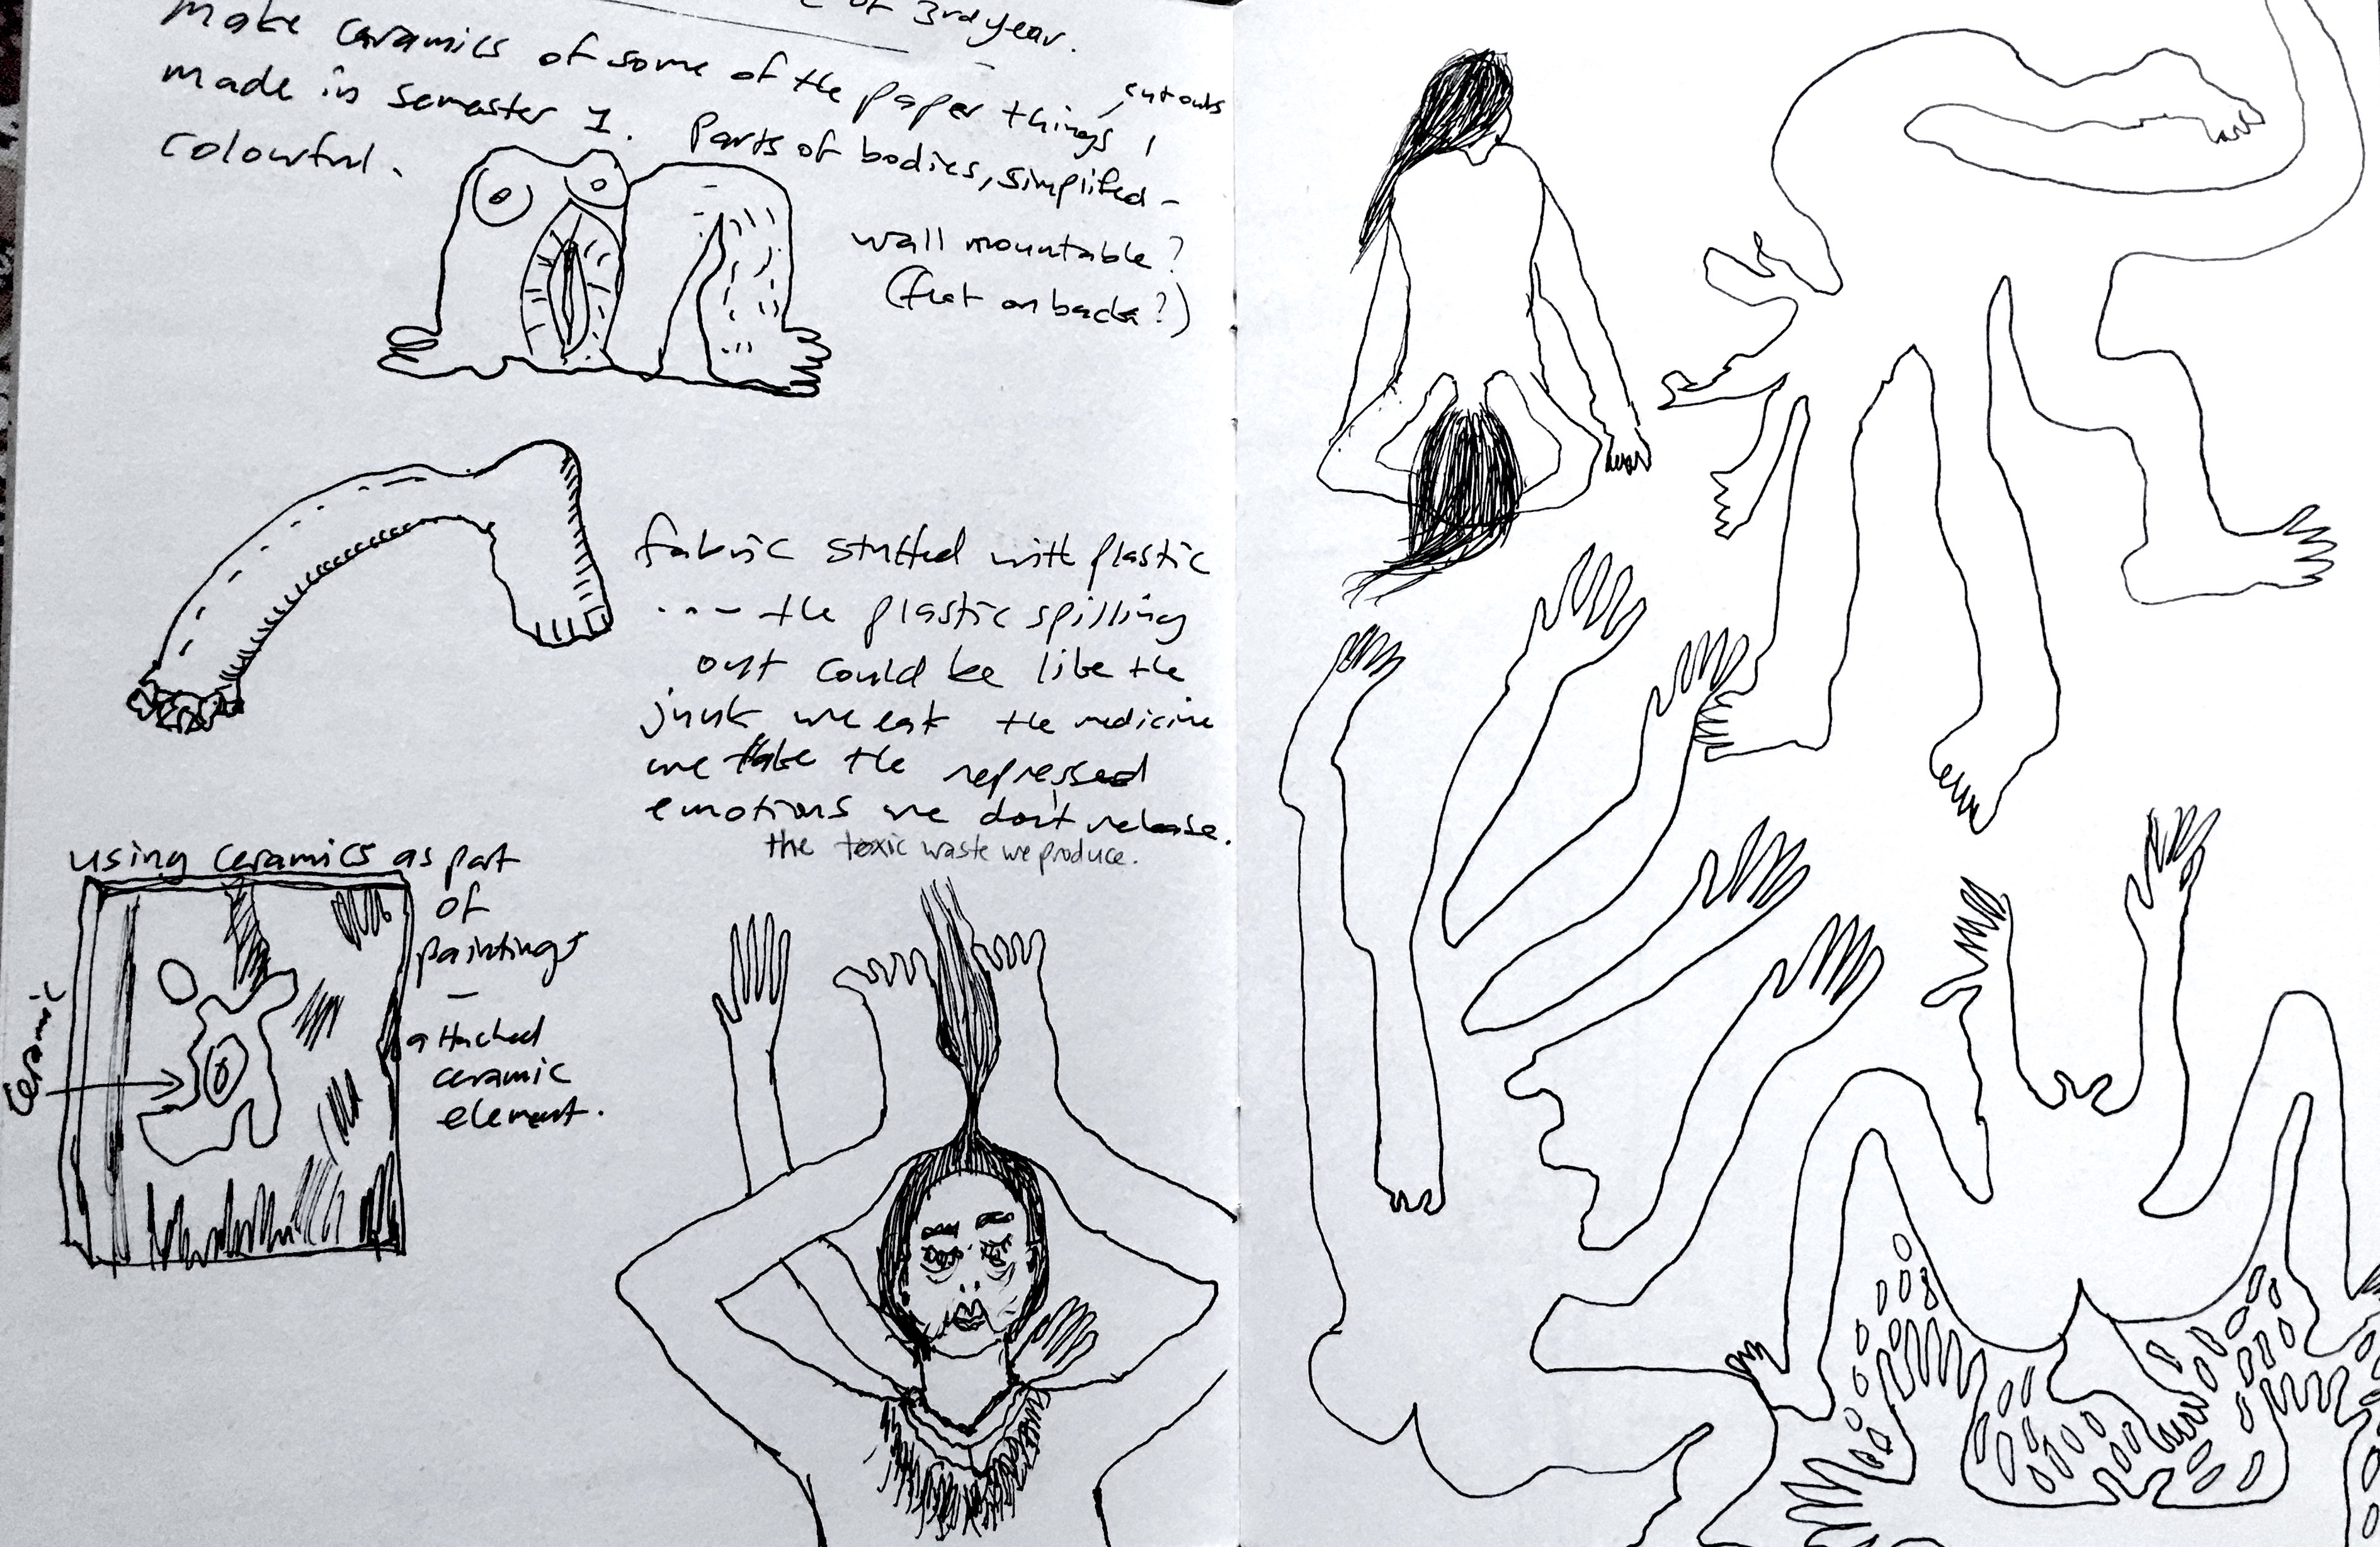 of 3rd year.
Make ceramics of some of the paper things, cutouts
made in semester 1. Parts of bodies, simplified -
colourful.
wall mountable?
(flat on back?)
fabric stuffed with plastic
... - the plastic spilling
out could be like the
junk we eat the medicine
we take the repressed
emotions we don't release.
the toxic waste we produce.
using ceramics as part
of
paintings
-
attached
ceramic
element.
Ceramic